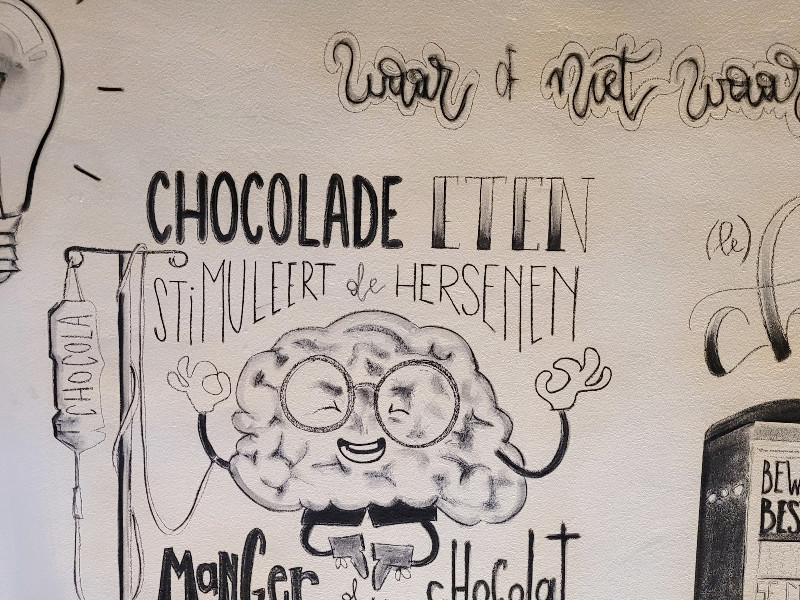 waar of niet waar
CHOCOLADE ETEN
STiMULEERT de HERSENEN
CHOCOLA
MANGer du cHocolat
(le)
BEW
BES